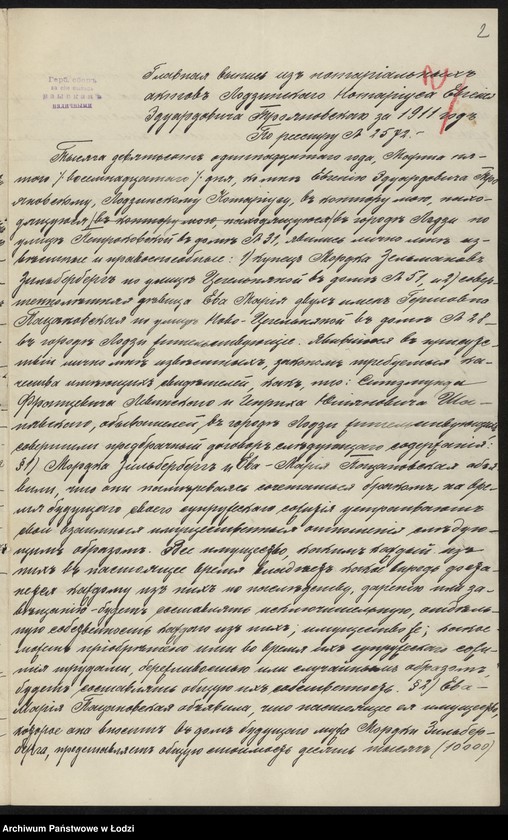 2
Герб. сборъ
взысканъ
наличными
Главная выпись изъ нотаріальныхъ
актовъ Лодзинскаго Нотаріуса Евгенія
Эдуардовича Трояновскаго за 1911 годъ
По реестру № 2572.-
Тысяча девятьсотъ одиннадцатаго года, Марта пя-
таго /восемнадцатаго/ дня, ко мнѣ Евгенію Эдуардовичу Тро-
яновскому, Лодзинскому Нотаріусу, въ контору мою, нахо-
дящуюся /въ контору мою, находящуюся/ въ городѣ Лодзи по
улицѣ Петроковской въ домѣ № 21, явились лично мнѣ из-
вѣстные и правоспособные: 1) купецъ Мордка Зельмановъ
Зильбербергъ по улицѣ Цегельняной въ домѣ № 51, и 2) совер-
шеннолѣтняя дѣвица Ева Марія двухъ именъ Гершовна
по улицѣ Ново-Цегельняной въ домѣ № 28-
въ городѣ Лодзи жительствующіе. Явившіеся въ присутс-
твіи лично мнѣ извѣстныхъ, закономъ требуемыя ка-
чества имѣющихъ свидѣтелей, какъ то: Сигизмунда
Францевича и Генриха Юліановича
обывателей, въ городѣ Лодзи жительствующихъ
совершили предбрачный договоръ слѣдующаго содержанія:
§1) Мордка Зильбербергъ и Ева-Марія объя
вили, что они намѣреваясь сочетаться бракомъ, на вре-
мя будущаго своего супружескаго союза устраиваютъ
свои взаимныя имущественныя отношенія слѣдую-
щимъ образомъ. Все имущество, какимъ каждый изъ
нихъ въ настоящее время владѣетъ какое впредь доста-
нется каждому изъ нихъ по наслѣдству, даренію или за-
вѣщанію-будетъ составлять исключительную, отдѣль-
ную собственность каждаго изъ нихъ; имущество же, какое
пріобрѣтено ими во время ихъ супружескаго сою-
за трудами, бережливостью или случайнымъ образомъ,
будетъ составлять общую ихъ собственность. §2) Ева-
Марія объявила, что настоящее ея имущество,
которое она вноситъ въ домъ будущаго мужа Мордки Зильбер-
берга, представляетъ общую стоимость десять тысячъ (10000)
Archiwum Państwowe w Łodzi